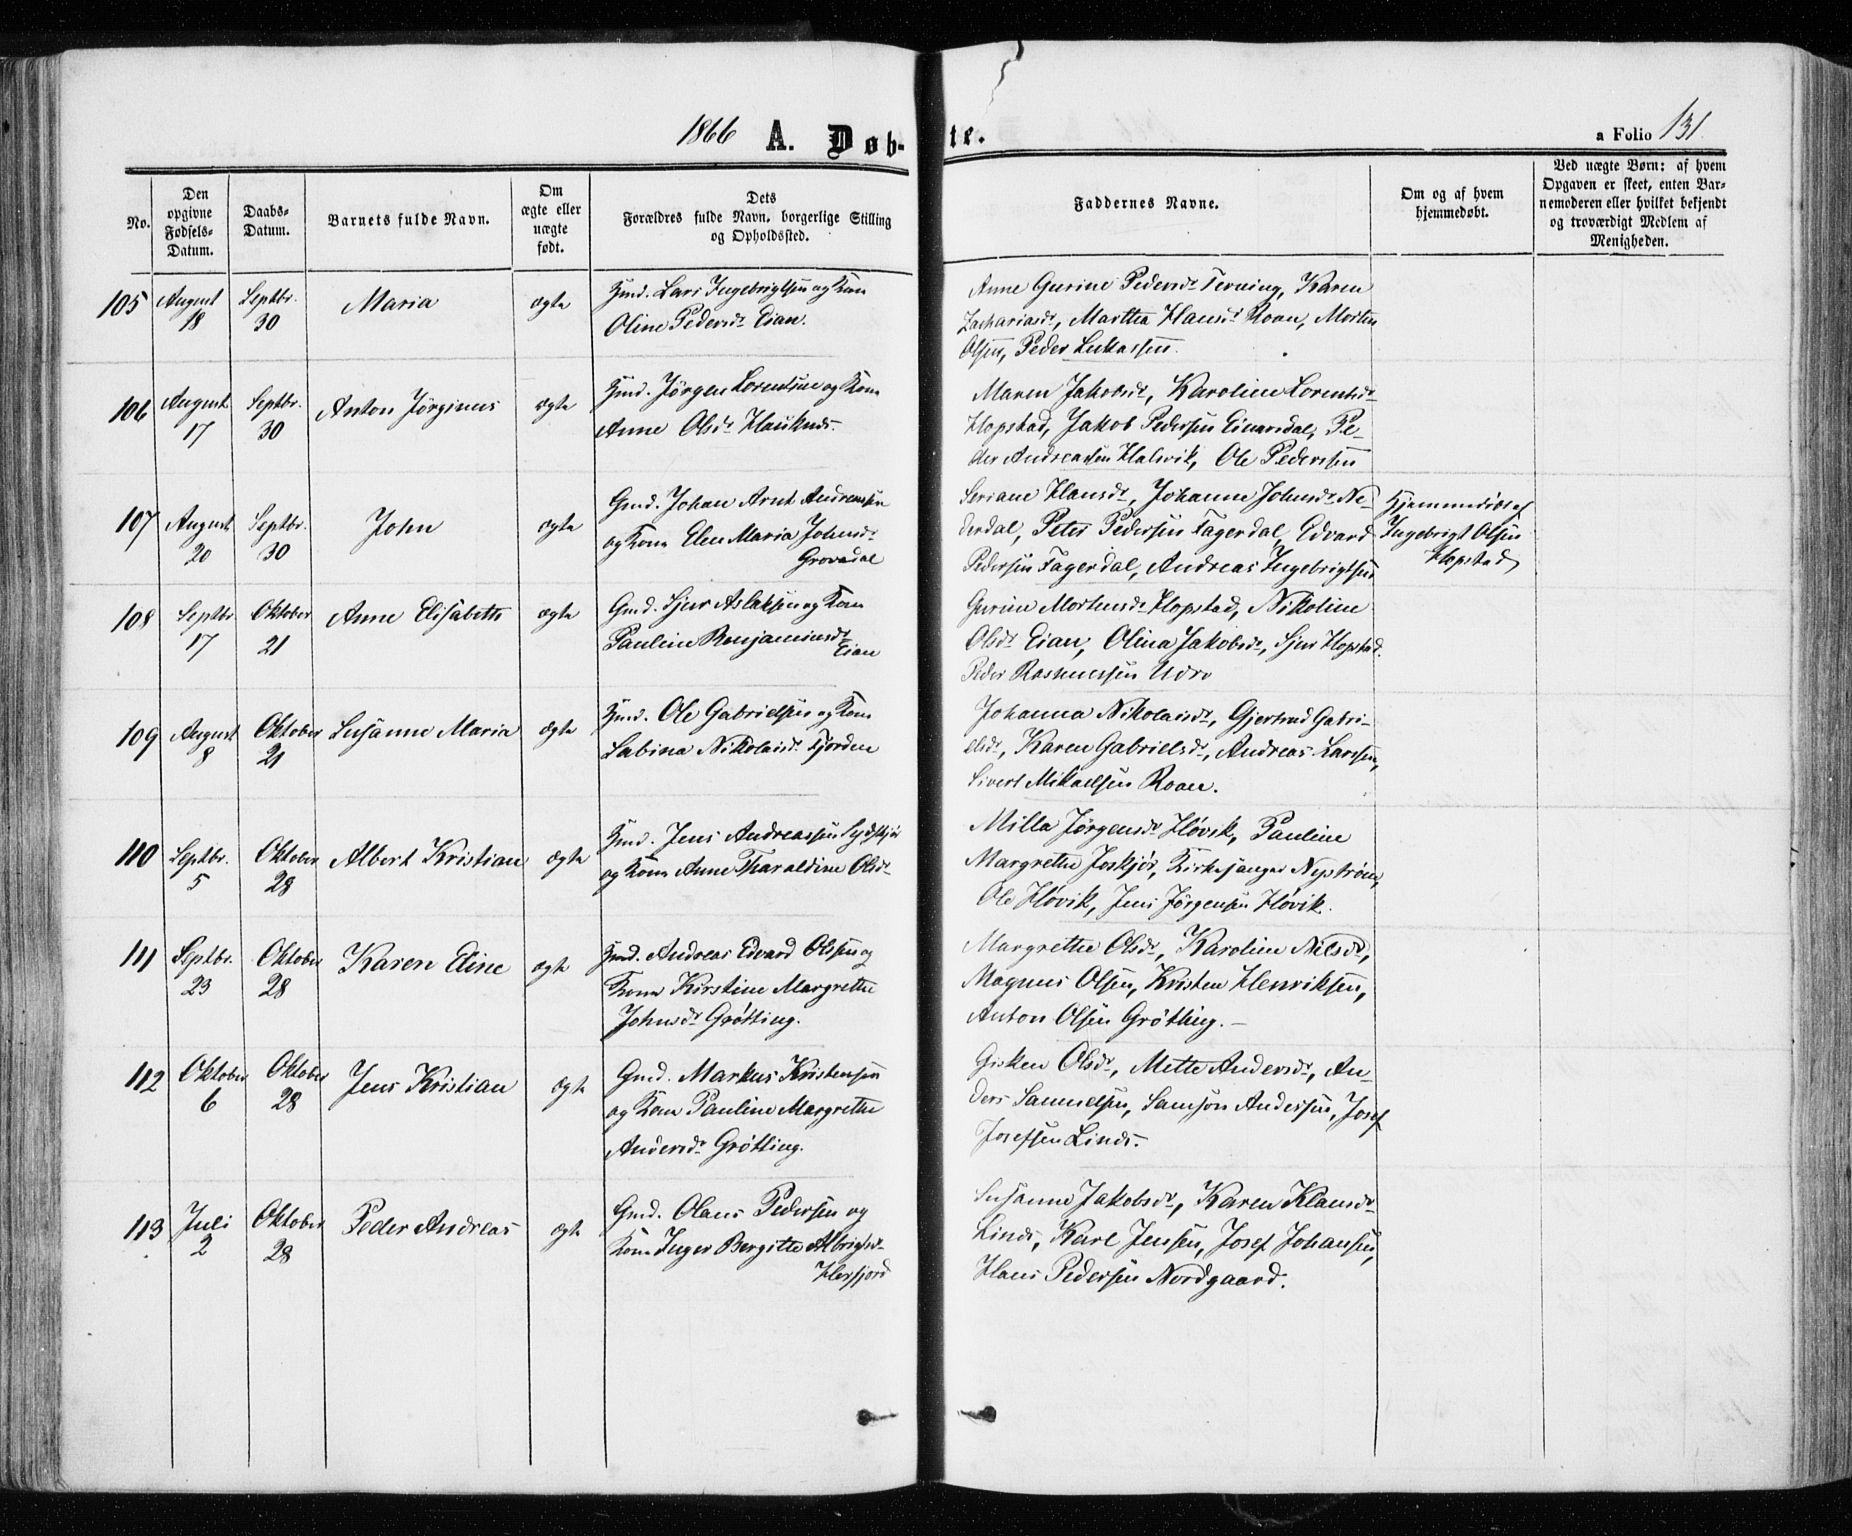 1866 A. Døb-te. a Folio 131
No.
Den opgivne Fødsels-Datum.
Daabs-Datum.
Barnets fulde Navn.
Om ægte eller uægte født.
Dets Forældres fulde Navn, borgerlige Stilling og Opholdssted.
Faddernes Navne.
Om og af hvem hjemmedøbt.
Ved uægte Børn: af hvem Opgaven er skeet, enten Barnemoderen eller hvilket bekjendt og troværdigt Medlem af Menigheden.
105 August 18 Septbr. 30 Maria ægte
Lars Ingebrigtsen og Kone
Oline Pedersdr Eian.
Anne Gurine Pedersdr Terning, Karen
Zachariasdr, Martha Hansdr Roan, Morten
Olsen, Peder Lukassen.
106 August 17 Septbr. 30 Anton Jørginus ægte
Jørgen Lorentsen og Kone
Anne Olsdr Hauknes.
Maren Jakobsdr, Karoline Lorentsdr
Hopstad, Jakob Pedersen Einarsdal, Pe-
der Andreassen Halsvik, Ole Pedersen
107 August 20 Septbr. 30 John ægte
Gmd. Johan Arnt Andreassen
og Kone Elen Maria Johnsdr
Grovadal
Seriane Hansdr, Johanne Johnsdr Ne-
derdal, Peter Pedersen Fagerdal, Edvard
Pedersen Fagerdal, Andreas Ingebrigtsen
Hjemmedøbt af
Ingebrigt Olsen
Hopstad
108 Septbr 17 Oktober 21 Anne Elisabeth ægte
Gmd. Sjur Aslaksen og Kone
Pauline Benjaminsdr
Eian
Gurine Mortensdr Hopstad, Nikoline
Olsdr Eian, Olina Jakobsdr, Sjur Hopstad.
Peder Rasmussen Udro
109 August 8 Oktober 21 Susanne Maria ægte
Ole Gabrielsen og Kone
Sabina Nikolaisdr Fjorden
Johanna Nikolaisdr, Gjertrud Gabri-
elsdr, Karen Gabrielsdr, Andreas Larssen,
Sivert Mikaelsen Roan.
110 Septbr. 5 Oktober 28 Albert Kristian ægte
Jens Andreassen Sydskjør
og Kone Anne Tharaldine Olsdr
Milla Jørgensdr Høvik, Pauline
Margrethe Joskjør, Kirkesanger Nystrøm,
Ole Høvik, Jens Jørgensen Høvik.
111 Septbr. 23 Oktober 28 Karen Eline ægte
Andreas Edvard Olssen og
Kone Kirstine Margrethe
Johnsdr Grøtting.
Margrethe Olsdr, Karoline Nilsdr,
Magnus Olsen, Kristen Henriksen,
Anton Olsen Grøtting.-
112 Oktober 6 Oktober 28 Jens Kristian ægte
Gmd. Markus Kristensen
og Kone Pauline Margrethe
Andersdr Grøtting.
Gisken Olsdr, Mette Andersdr, An-
ders Samuelsen, Samson Andersen, Josef
Josefsen Linds.
113 Juli 2 Oktober 28 Peder Andreas ægte
Gmd. Olaus Pedersen og
Kone Inger Bergitte Albrigtsdr
Hersfjord
Susanne Jakobsdr, Karen Klausdr
Linds, Karl Jensen, Josef Johansen,
Hans Pedersen Nordgaard.